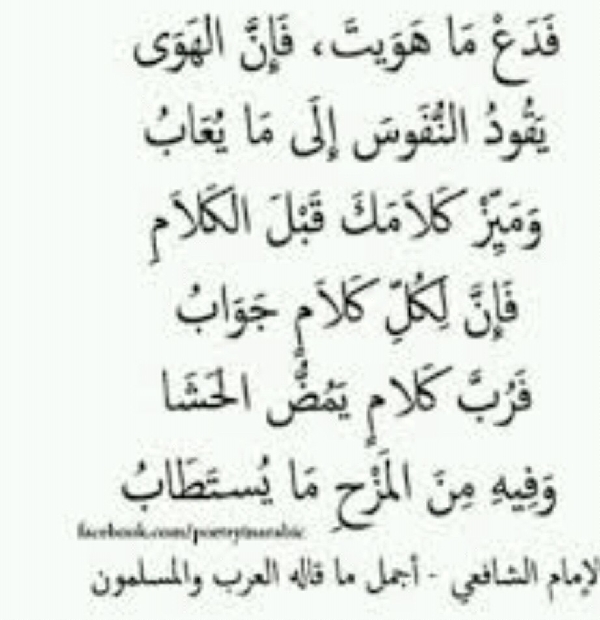 فَدَعْ مَا هَوَيتَ، فَإِنَّ الهَوَى
يَقُودُ النُّفَوسَ إِلَى مَا يُعَابُ
وَمَيِّزْ كَلاَمَكَ قَبْلَ الكَلاَمِ
فَإِنَّ لِكُلِّ كَلاَمٍ جَوَابُ
فَرُبَّ كَلامٍ يَمُضُّ الحَشَا
وَفِيهِ مِنَ المَزْحِ مَا يُستَطَابُ
facebook.com/poetryinarabic
لإمام الشافعي - أجمل ما قاله العرب والمسلمون